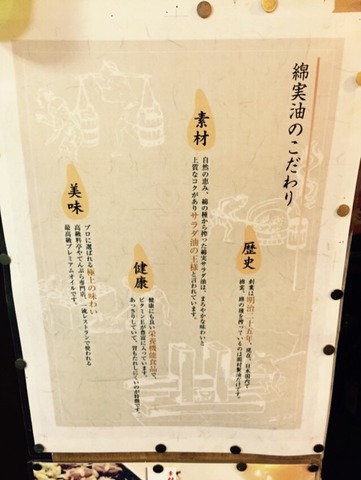 綿実油のこだわり
歴史
創業は明治二十五年。現在、日本国内で
綿実、綿の種を搾っているのは岡村製油だけです。
素材
自然の恵み、綿の種から搾った綿実サラダ油は、まろやかな味わいと
上質なコクがありサラダ油の王様と言われています。
健康
健康にも良い栄養機能食品で、
ビタミンEが豊富に入っています。
あっさりしていて、胃もたれしにくいのが特徴です。
美味
プロに選ばれる極上の味わい
高級料亭やてんぷら専門店、一流レストランで使われる
最高級プレミアムオイルです。